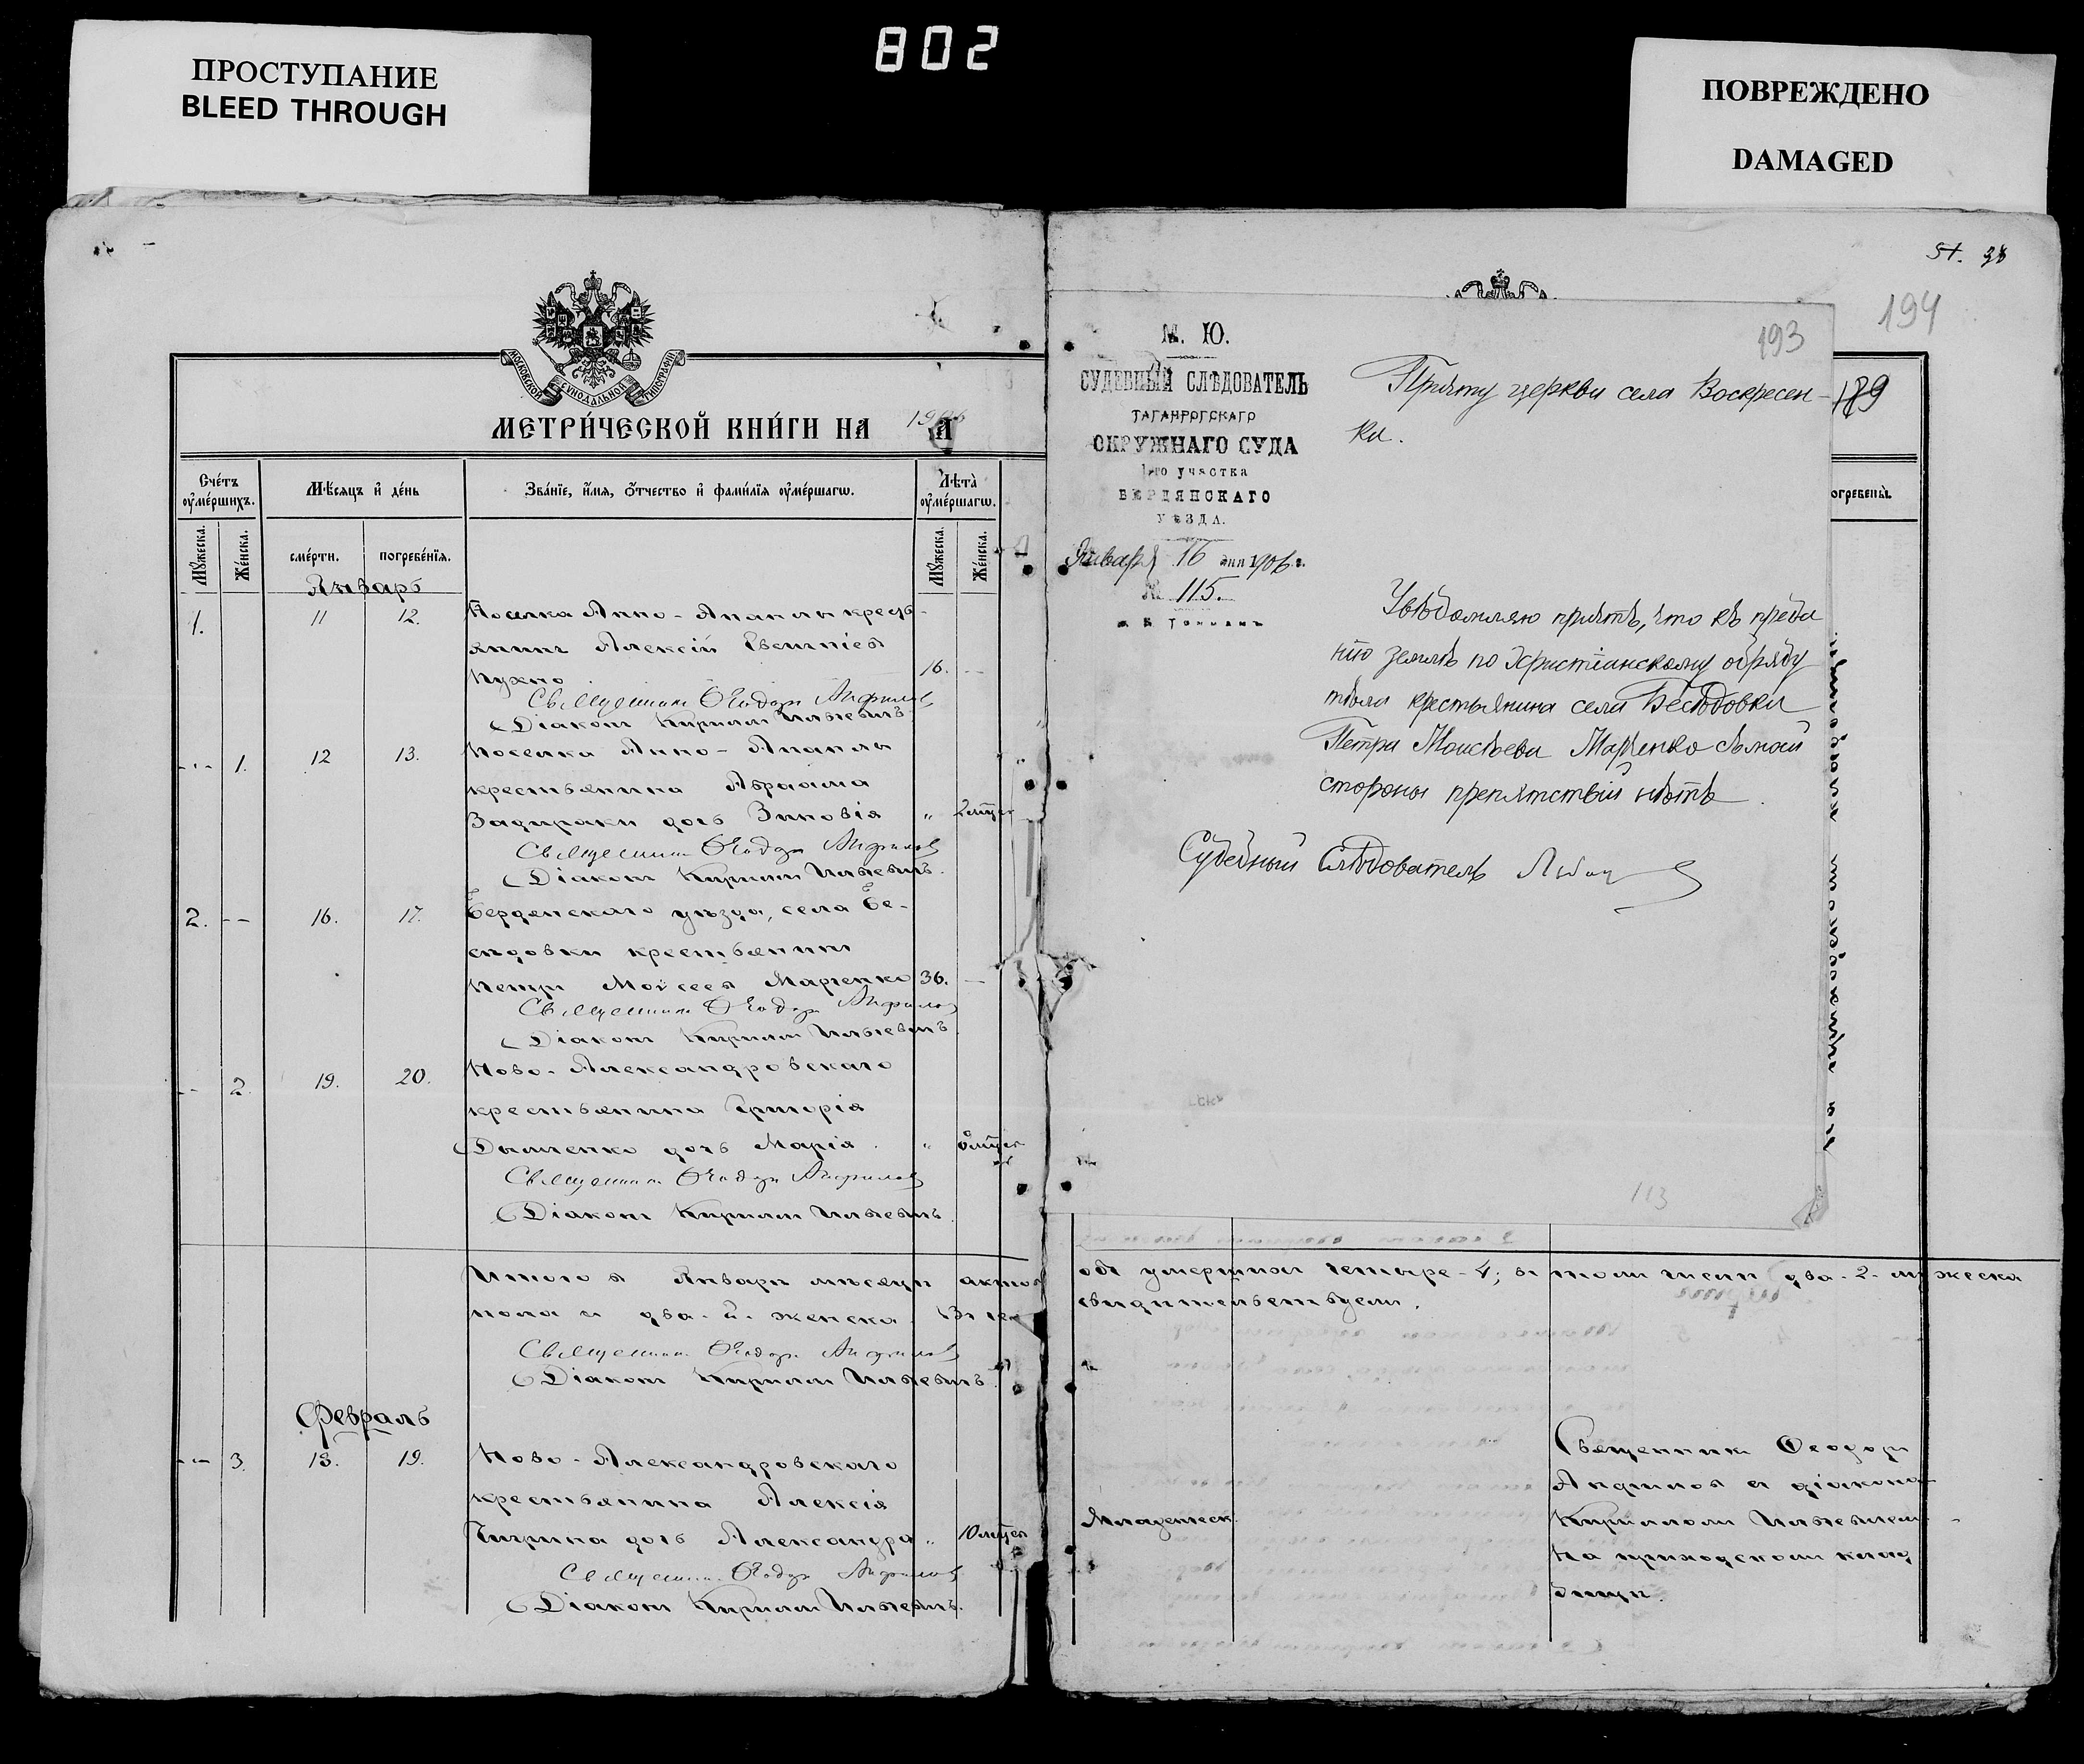 ПРОСТУПАНИЕ
BLEED THROUGH
802
ПОВРЕЖДЕНО
DAMAGED
МОСКОВСКОЙ СУНОДАЛЬНОЙ ТИПОГРАФІИ
МЕТРИ́ЧЕСКОЙ КНИ́ГИ НА 1906
Сче́тъ оу҆ме́ршихъ.
Мѣ́сяцъ и҆ де́нь
Зва́нїе, и҆́мя, ѻ҆́тчество и҆ фами́лїя оу҆ме́ршагѡ.
Лѣта̀ оу҆ме́ршагѡ.
Мꙋ́жеска.
Же́нска.
сме́рти.
погребе́нїя.
Мꙋ́жеска.
Же́нска.
Январь
1. 11 12. Поселка Анно-Опанлы кресть-
янинъ Алексій
16. —
Священникъ Ѳеодоръ Анфиловъ
Діаконъ Кириллъ Ильяевичъ
1. 12 13. Поселка Анно-Опанлы
крестьянина Авраама
Задираки дочь Зиновія " 2 мѣсец
Священникъ Ѳеодоръ Анфиловъ
Діаконъ Кириллъ Ильяевичъ.
2. -- 16. 17. Бердянскаго уѣзда, села Бе-
сѣдовки крестьянинъ
Петръ Моѵсеевъ Марченко 36. —
Священникъ Ѳеодоръ Анфиловъ
Діаконъ Кириллъ Ильяевичъ.
-- 2. 19. 20. Ново-Александровскаго
крестьянина Григорія
дочь Марія. "
Священникъ Ѳеодоръ Анфиловъ
Діаконъ Кириллъ Ильяевичъ.
Итого въ Январѣ мѣсяцѣ
пола и два-2. женска.
Священникъ Ѳеодоръ Анфиловъ
Діаконъ Кириллъ Ильяевичъ.
Февраль
-- 3. 18. 19. Ново-Александровскаго
крестьянина Алексія
дочь Александра " 10 мѣсец
Священникъ Ѳеодоръ Анфиловъ
Діаконъ Кириллъ Ильяевичъ.
194
193
189
М. Ю.
СУДЕБНЫЙ СЛѢДОВАТЕЛЬ
ТАГАНРОГСКАГО
ОКРУЖНАГО СУДА
1-го участка
БЕРДЯНСКАГО
УѢЗДА.
Января 16 дня 1906 г.
№ 115.
Г. Токмакъ
Причту церкви села Воскресен-
ки.
Увѣдомляю причтъ, что къ преда
нію землѣ по Христіанскому обряду
тѣла крестьянина села Бесѣдовки
Петра Моисѣева Марченко съ моей
стороны препятствій нѣтъ.
Судебный Слѣдователь
113
умершихъ четыре-4; въ томъ числѣ два-2. мужеска
свидѣтельствуемъ.
Младенческ.
Священникъ Ѳеодоръ
Анфиловъ съ діакономъ
Кирилломъ Ильяевичемъ.
На приходскомъ клад
бищѣ.